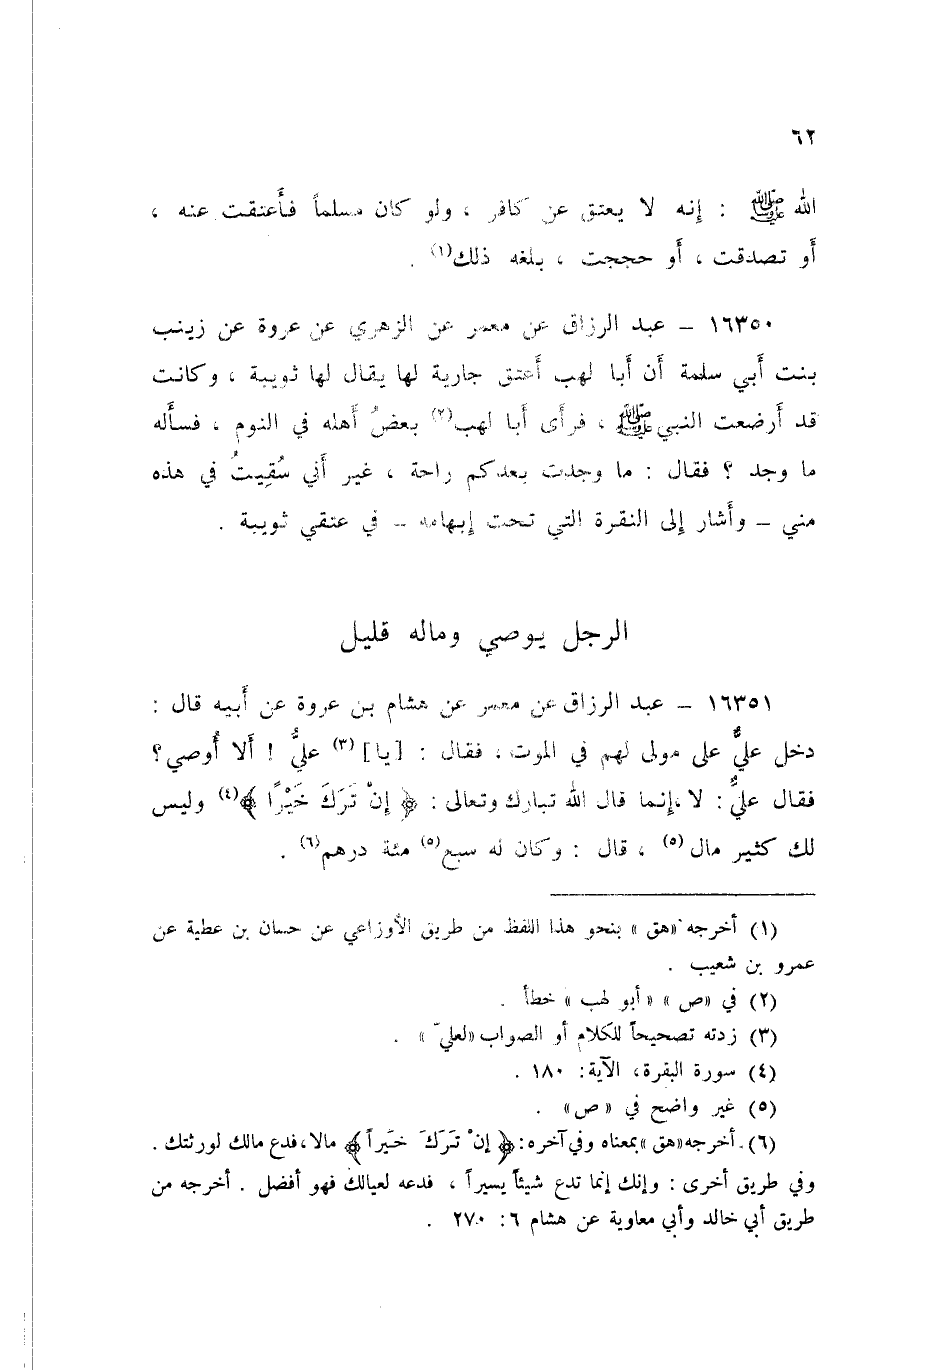 ٦٢
الله ﷺ : إنه لا يعتق عن كافر ، ولو كان مسلماً فأَعتقت عنه ،
أَو تصدقت ، أَو حججت ، بلغه ذلك(١) .
١٦٣٥٠ – عبد الرزاق عن معمر عن الزهري عن عروة عن زينب
بنت أَبي سلمة أَن أَبا لهب أَعتق جارية لها يقال لها ثويبة ، وكانت
قد أَرضعت النبي ﷺ ، فرأَى أَبا لهب(٢) بعضُ أَهله في النوم ، فسأَله
ما وجد ؟ فقال : ما وجدت بعدكم راحة ، غير أَني سُقِيتُ في هذه
مني – وأَشار إِلى النقرة التي تحت إِبهامه – في عتقي ثويبة .
الرجل يوصي وماله قليل
١٦٣٥١ – عبد الرزاق عن معمر عن هشام بن عروة عن أَبيه قال :
دخل عليٌّ على مولى لهم في الموت ، فقال : [يا](٣) عليُّ ! أَلا أُوصي؟
فقال عليٌّ : لا ،إنما قال الله تبارك وتعالى : ﴿ إِنْ تَرَكَ خَيْرًا ﴾(٤) وليس
لك كثير مال(٥) ، قال : وكان له سبع(٥) مئة درهم(٦) .
(١) أخرجه «هق» بنحو هذا اللفظ من طريق الأوزاعي عن حسان بن عطية عن
عمرو بن شعيب .
(٢) في «ص» «أبو لهب» خطأ .
(٣) زدته تصحيحاً للكلام أو الصواب «لعليّ» .
(٤) سورة البقرة، الآية: ١٨٠ .
(٥) غير واضح في «ص» .
(٦) أخرجه «هق» بمعناه وفي آخره: ﴿ إنْ تَرَكَ خَيراً ﴾ مالا، فدع مالك لورثتك .
وفي طريق أخرى : وإنك إنما تدع شيئاً يسيراً ، فدعه لعيالك فهو أفضل . أخرجه من
طريق أبي خالد وأبي معاوية عن هشام ٦: ٢٧٠ .